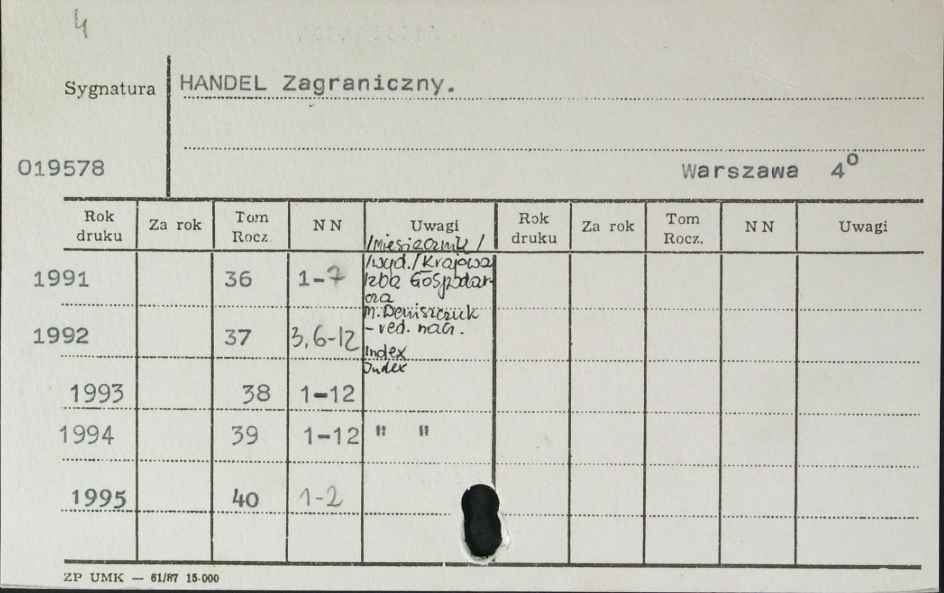 4
Sygnatura HANDEL Zagraniczny.
019578 Warszawa 4°
Rok druku Za rok Tom Rocz N N Uwagi Rok druku Za rok Tom Rocz. N N Uwagi
/miesięcznik/
/wyd./Krajowa
1991 36 1-7 Izba Gospodar-
cza
M. Deniszczuk
1992 37 3,6-12 - red. nacz.
Index
Index
1993 38 1-12
1994 39 1-12 " "
1995 40 1-2
ZP UMK — 61/87 15-000